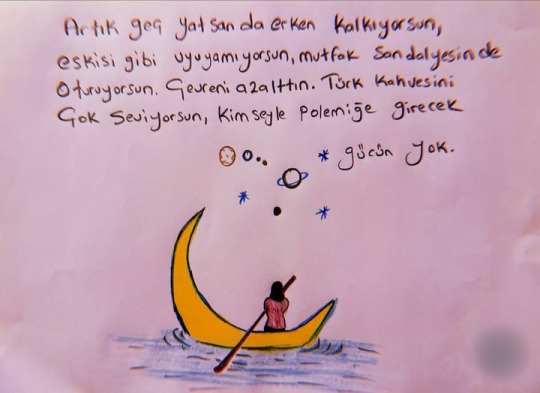 Artık geç yatsan da erken kalkıyorsun,
eskisi gibi uyuyamıyorsun, mutfak sandalyesinde
oturuyorsun. Çevreni azalttın. Türk kahvesini
Çok seviyorsun, kimseyle polemiğe girecek
gücün yok.